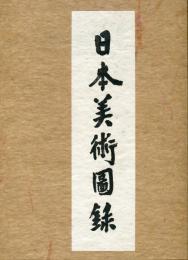 日本美術圖録